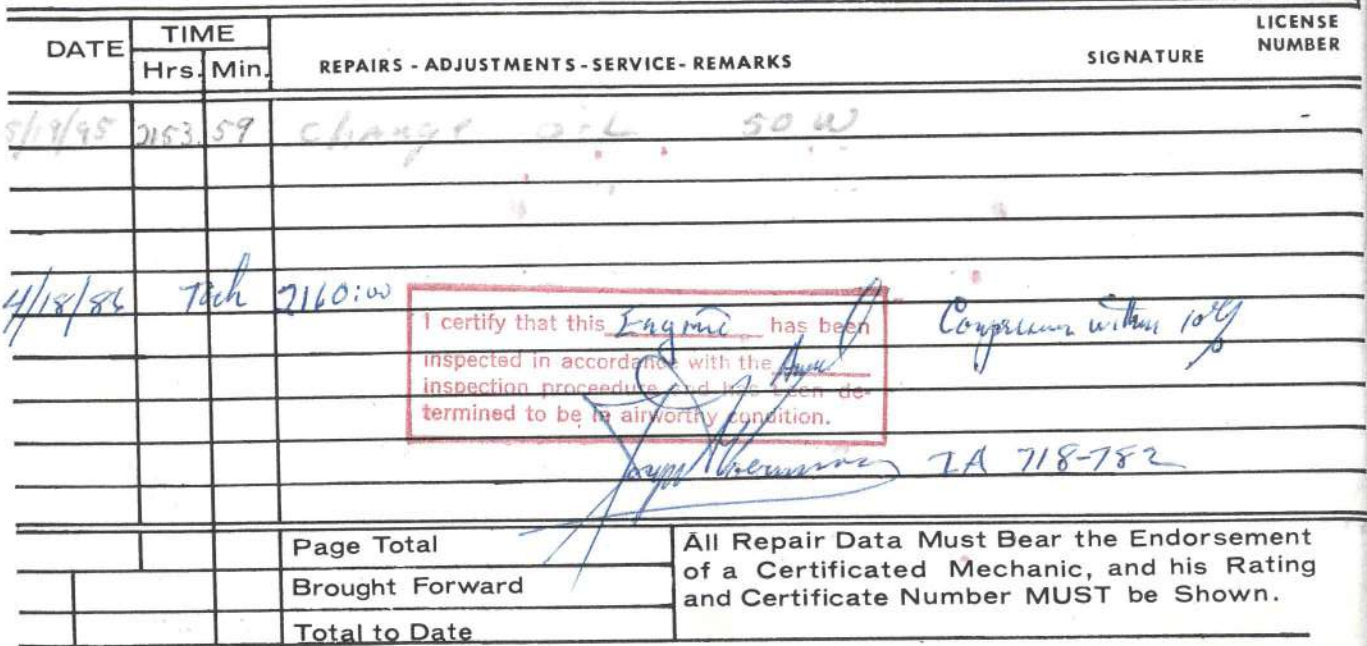 DATE TIME REPAIRS - ADJUSTMENTS - SERVICE - REMARKS SIGNATURE LICENSE NUMBER
Hrs. Min.
5/19/95 2153.59 Change OIL 50 W -
4/18/86 Tach 2160:00
I certify that this Engine has been
inspected in accordance with the
inspection proceedure and has been de-
termined to be in airworthy condition.
within 10%
IA 718-782
Page Total
Brought Forward
Total to Date
All Repair Data Must Bear the Endorsement
of a Certificated Mechanic, and his Rating
and Certificate Number MUST be Shown.